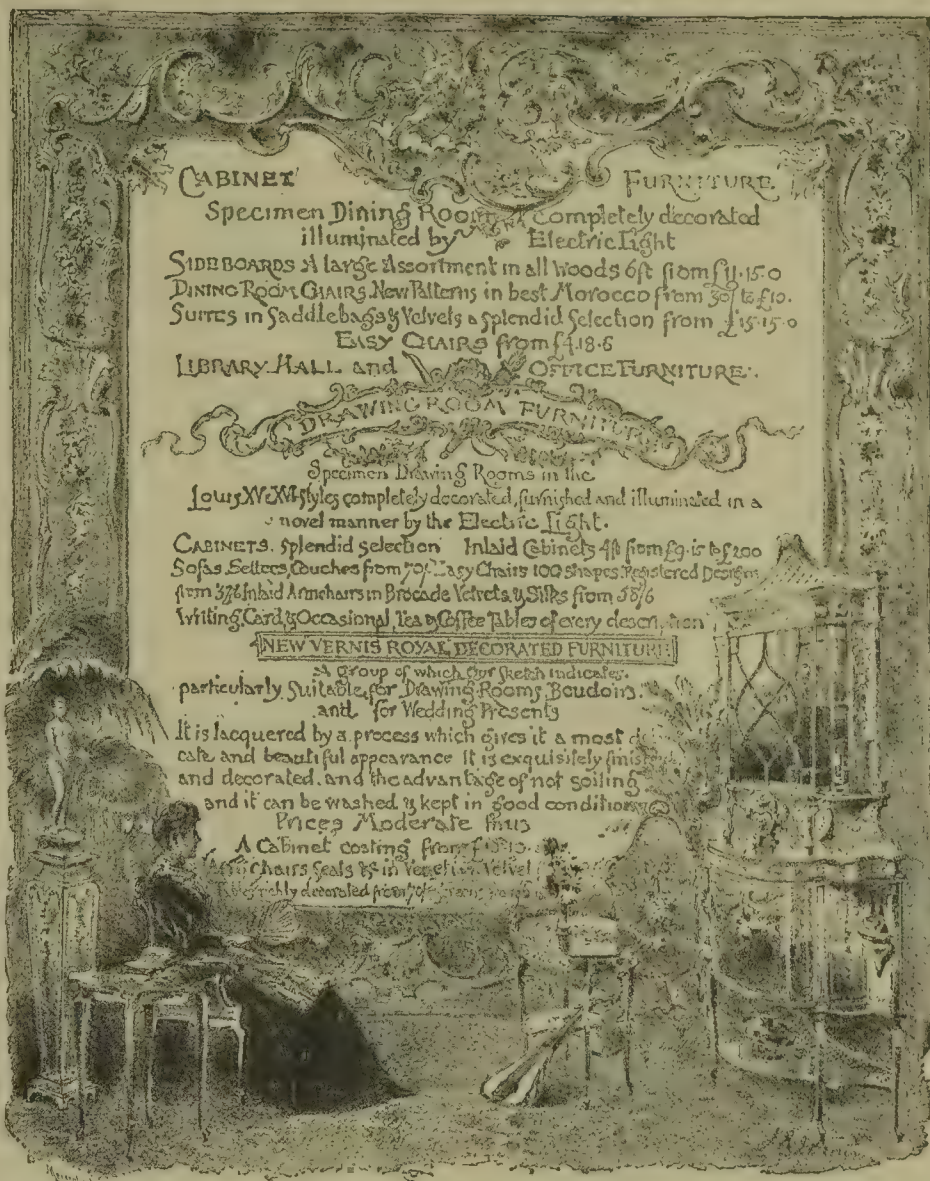 CABINET FURNITURE
Specimen Dining Room completely decorated
illuminated by Electric Light
SIDEBOARDS A large Assortment in all Woods 6ft from £11.15.0
DINING ROOM CHAIRS. New Patterns in best Morocco from 30/ to £10.
SUITES in Saddlebags & Velvets a splendid Selection from £15.15.0
EASY CHAIRS from £4.18.6
LIBRARY. HALL and OFFICE FURNITURE.
DRAWING ROOM FURNITURE
Specimen Drawing Rooms in the
Louis XV & XVI styles completely decorated, furnished and illuminated in a
novel manner by the Electric Light.
CABINETS. Splendid Selection Inlaid Cabinets 4ft from £9.15 to £200
Sofas, Settees, Couches from 70/- Easy Chairs 100 shapes. Registered Designs
from 37/6 Inlaid Armchairs in Brocade Velvets & Silks from 58/6
Writing, Card, & Occasional, Tea & Coffee Tables of every description
NEW VERNIS ROYAL DECORATED FURNITURE
A Group of which Our Sketch indicates.
particularly Suitable for Drawing Rooms, Boudoirs.
and for Wedding Presents
It is lacquered by a process which gives it a most
cate and beautiful appearance It is exquisitely
and decorated. and the advantage of not soiling
and it can be washed & kept in good condition
Prices Moderate thus
A Cabinet costing from
Chairs Seals in Velvet
richly decorated from